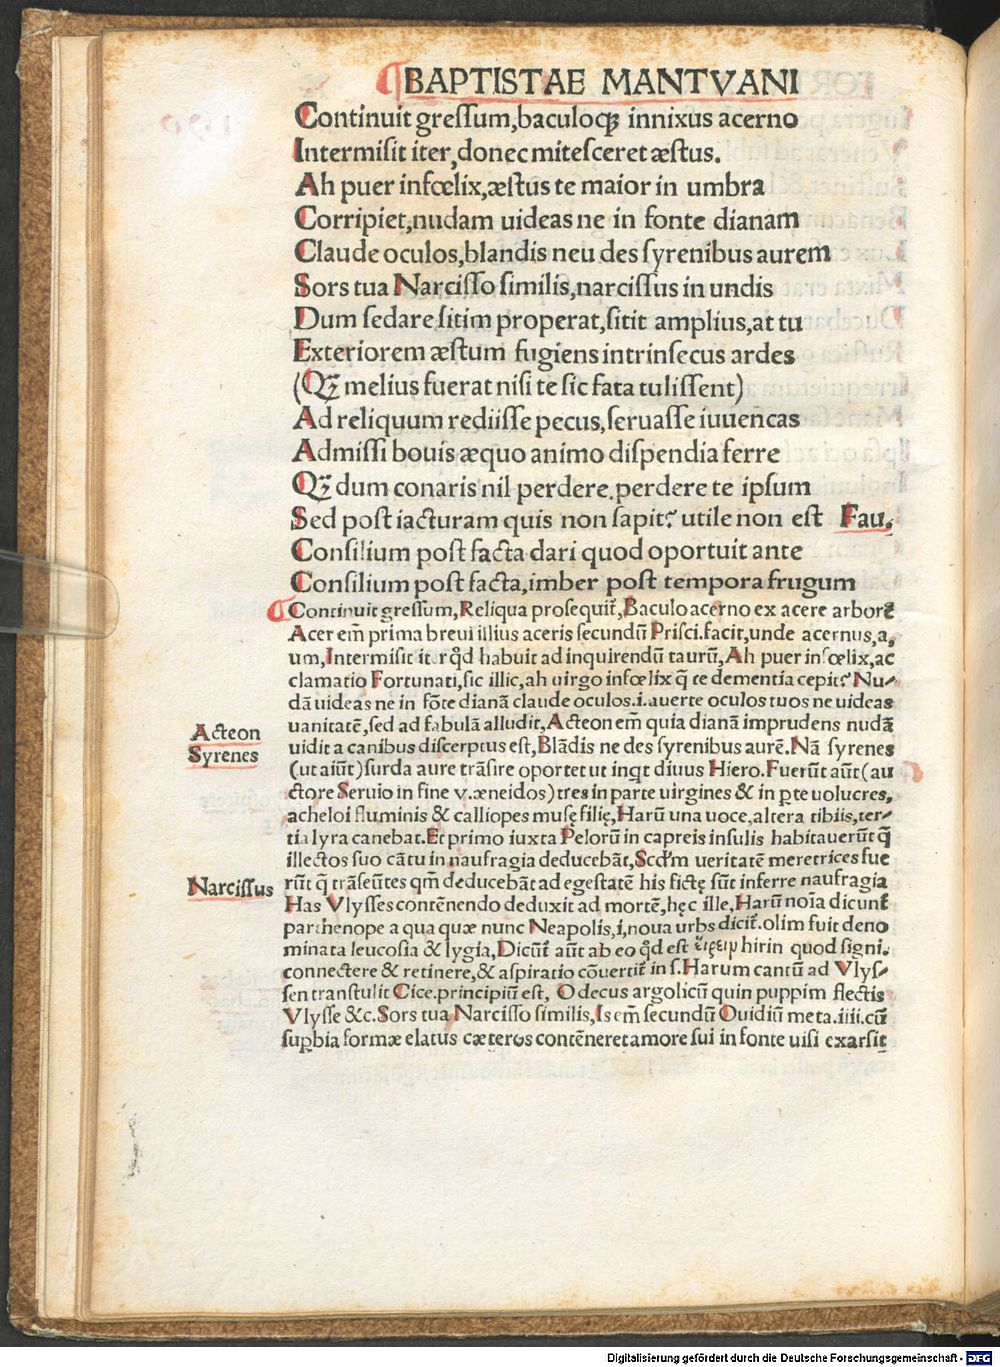 BAPTISTAE MANTVANI
Continuit greſſum,baculoqꝫ innixus acerno
Intermiſit iter,donec miteſceret æſtus.
Ah puer infœlix,æſtus te maior in umbra
Corripiet,nudam uideas ne in fonte dianam
Claude oculos,blandis neu des ſyrenibus aurem
Sors tua Narciſſo ſimilis,narciſſus in undis
Dum ſedare ſitim properat,ſitit amplius,at tu
Exteriorem æſtum fugiens intrinſecus ardes
(Qꝫ melius fuerat niſi te ſic fata tuliſſent)
Ad reliquum rediiſſe pecus,ſeruaſſe iuuencas
Admiſſi bouis æquo animo diſpendia ferre
Qꝫ dum conaris nil perdere.perdere te ipſum
Sed poſt iacturam quis non ſapit? utile non eſt Fau.
Conſilium poſt facta dari quod oportuit ante
Conſilium poſt facta,imber poſt tempora frugum
Continuit greſſum,Reliqua proſequit̃,Baculo acerno ex acere arborẽ
Acer em̃ prima breui illius aceris ſecundũ Priſci.facit,unde acernus,a,
um,Intermiſit it.r qd̃ habuit ad inquirendũ taurũ,Ah puer infœlix,ac
clamatio Fortunati,ſic illic,ah uirgo infœlix q̃ te dementia cepit? Nu⸗
dã uideas ne in fõte dianã claude oculos.i.auerte oculos tuos ne uideas
uanitatẽ,ſed ad fabulã alludit,Acteon em̃ quia dianã imprudens nudã
Acteon
uidit a canibus diſcerptus eſt,Blãdis ne des ſyrenibus aurẽ.Nã ſyrenes
Syrenes
(ut aiũt)ſurda aure trãſire oportet ut inqt diuus Hiero.Fuerũt aũt(au
ctore Seruio in fine v.æneidos)tres in parte uirgines & in ꝑte uolucres,
acheloi fluminis & calliopes muſę filię,Harũ una uoce,altera tibiis,ter⸗
tia lyra canebat.Et primo iuxta Pelorũ in capreis inſulis habitauerũt q̃
illectos ſuo cãtu in naufragia deducebãt,Scd̃m ueritatẽ meretrices fue
Narciſſus
rũt q̃ trãſeũtes qm̃ deducebãt ad egeſtatẽ his fictę ſũt inferre naufragia
Has Vlyſſes contẽnendo deduxit ad mortẽ,hęc ille,Harũ noĩa dicunt̃
parthenope a qua quæ nunc Neapolis,i,noua urbs dicit̃.olim fuit deno
minata leucoſia & lygia,Dicũt̃ aũt ab eo qd̃ eſt hirin quod ſigni.
connectere & retinere,& aſpiratio cõuertit̃ in ſ.Harum cantũ ad Vlyſ⸗
ſen tranſtulit Cice.principiũ eſt, O decus argolicũ quin puppim flectis
Vlyſſe &c.Sors tua Narciſſo ſimilis,Is em̃ ſecundũ Ouidiũ meta.iiii.cũ
ſuꝑbia formæ elatus cæteros contẽneret amore ſui in fonte uiſi exarſit
Digitalisierung gefördert durch die Deutsche Forschungsgemeinschaft - DFG